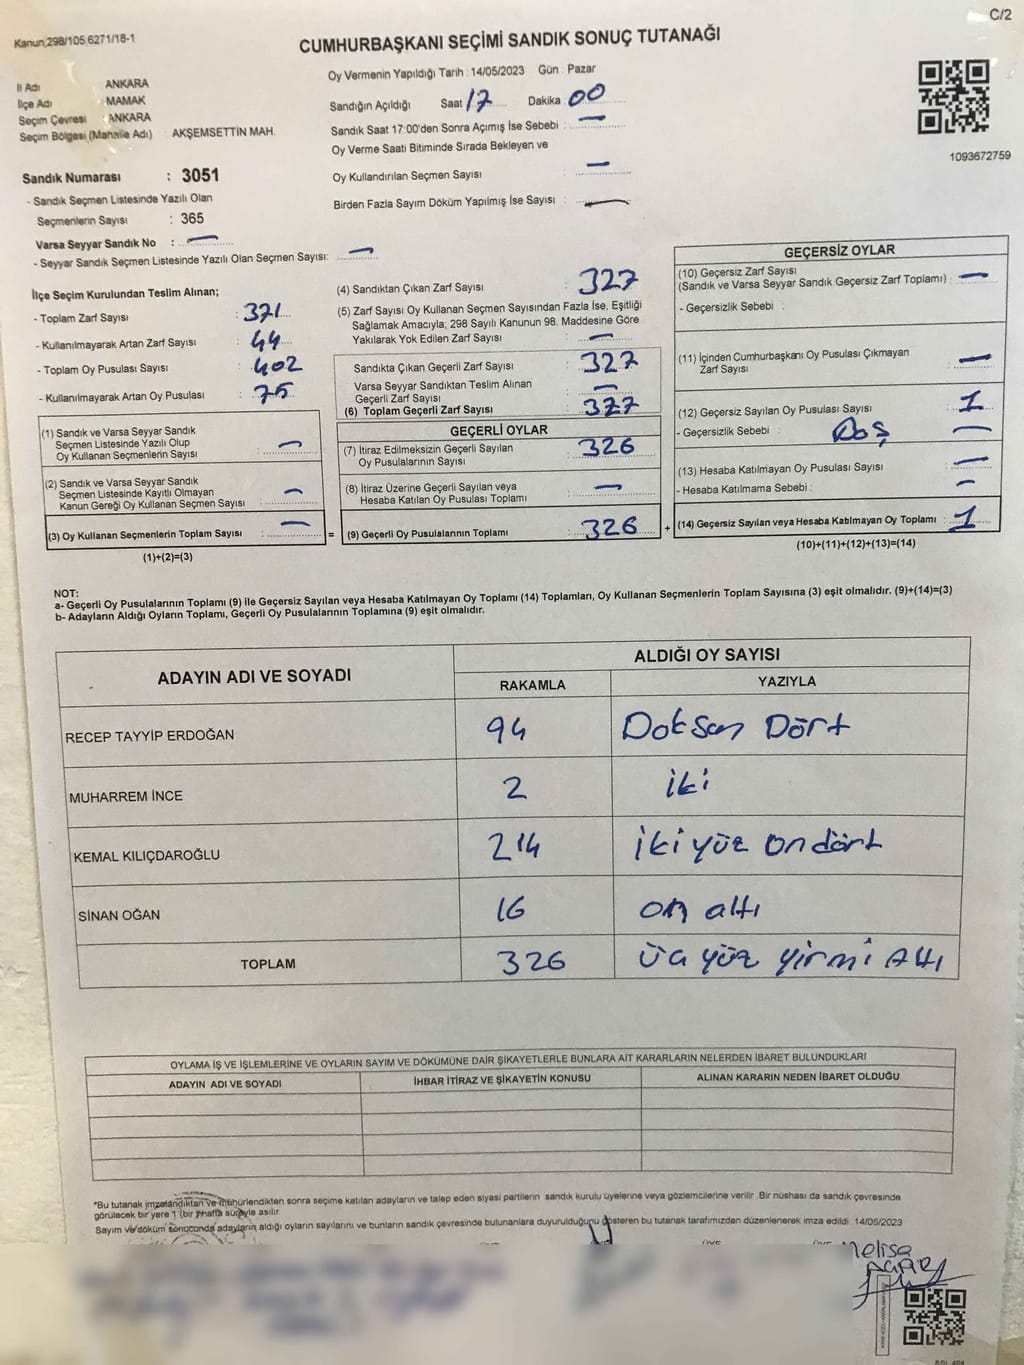 C/2
Kanun,298/105,6271/18-1
CUMHURBAŞKANI SEÇİMİ SANDIK SONUÇ TUTANAĞI
İl Adı : ANKARA
İlçe Adı : MAMAK
Seçim Çevresi : ANKARA
Seçim Bölgesi (Mahalle Adı) : AKŞEMSETTİN MAH.
Oy Vermenin Yapıldığı Tarih : 14/05/2023 Gün : Pazar
Sandığın Açıldığı Saat 17 Dakika : 00
Sandık Saat 17:00'den Sonra Açımış İse Sebebi : —
Oy Verme Saati Bitiminde Sırada Bekleyen ve
Oy Kullandırılan Seçmen Sayısı : —
Birden Fazla Sayım Döküm Yapılmış İse Sayısı : —
1093672759
Sandık Numarası : 3051
- Sandık Seçmen Listesinde Yazılı Olan
Seçmenlerin Sayısı : 365
Varsa Seyyar Sandık No : —
- Seyyar Sandık Seçmen Listesinde Yazılı Olan Seçmen Sayısı: —
İlçe Seçim Kurulundan Teslim Alınan;
- Toplam Zarf Sayısı : 371
- Kullanılmayarak Artan Zarf Sayısı : 44
- Toplam Oy Pusulası Sayısı : 402
- Kullanılmayarak Artan Oy Pusulası : 75
(1) Sandık ve Varsa Seyyar Sandık
Seçmen Listesinde Yazılı Olup
Oy Kullanan Seçmenlerin Sayısı : —
(2) Sandık ve Varsa Seyyar Sandık
Seçmen Listesinde Kayıtlı Olmayan
Kanun Gereği Oy Kullanan Seçmen Sayısı : —
(3) Oy Kullanan Seçmenlerin Toplam Sayısı : — =
(1)+(2)=(3)
(4) Sandıktan Çıkan Zarf Sayısı : 327
(5) Zarf Sayısı Oy Kullanan Seçmen Sayısından Fazla İse, Eşitliği
Sağlamak Amacıyla; 298 Sayılı Kanunun 98. Maddesine Göre
Yakılarak Yok Edilen Zarf Sayısı : —
Sandıkta Çıkan Geçerli Zarf Sayısı : 327
Varsa Seyyar Sandıktan Teslim Alınan
Geçerli Zarf Sayısı : —
(6) Toplam Geçerli Zarf Sayısı : 327
GEÇERLİ OYLAR
(7) İtiraz Edilmeksizin Geçerli Sayılan
Oy Pusulalarının Sayısı : 326
(8) İtiraz Üzerine Geçerli Sayılan veya
Hesaba Katılan Oy Pusulası Toplamı : —
(9) Geçerli Oy Pusulalarının Toplamı : 326 +
GEÇERSİZ OYLAR
(10) Geçersiz Zarf Sayısı
(Sandık ve Varsa Seyyar Sandık Geçersiz Zarf Toplamı) : —
- Geçersizlik Sebebi :
(11) İçinden Cumhurbaşkanı Oy Pusulası Çıkmayan
Zarf Sayısı : —
(12) Geçersiz Sayılan Oy Pusulası Sayısı : 1
- Geçersizlik Sebebi : Boş —
(13) Hesaba Katılmayan Oy Pusulası Sayısı : —
- Hesaba Katılmama Sebebi : —
(14) Geçersiz Sayılan veya Hesaba Katılmayan Oy Toplamı : 1
(10)+(11)+(12)+(13)=(14)
NOT:
a- Geçerli Oy Pusulalarının Toplamı (9) ile Geçersiz Sayılan veya Hesaba Katılmayan Oy Toplamı (14) Toplamları, Oy Kullanan Seçmenlerin Toplam Sayısına (3) eşit olmalıdır. (9)+(14)=(3)
b- Adayların Aldığı Oyların Toplamı, Geçerli Oy Pusulalarının Toplamına (9) eşit olmalıdır.
ADAYIN ADI VE SOYADI
ALDIĞI OY SAYISI
RAKAMLA YAZIYLA
RECEP TAYYİP ERDOĞAN 94 Doksan Dört
MUHARREM İNCE 2 iki
KEMAL KILIÇDAROĞLU 214 iki yüz on dört
SİNAN OĞAN 16 on altı
TOPLAM 326 üç yüz yirmi Altı
OYLAMA İŞ VE İŞLEMLERİNE VE OYLARIN SAYIM VE DÖKÜMÜNE DAİR ŞİKAYETLERLE BUNLARA AİT KARARLARIN NELERDEN İBARET BULUNDUKLARI
ADAYIN ADI VE SOYADI İHBAR İTİRAZ VE ŞİKAYETİN KONUSU ALINAN KARARIN NEDEN İBARET OLDUĞU
*Bu tutanak imzalandıktan ve mühürlendikten sonra seçime katılan adayların ve talep eden siyasi partilerin sandık kurulu üyelerine veya gözlemcilerine verilir. Bir nüshası da sandık çevresinde
görülecek bir yere 1 (bir) hafta süreyle asılır.
Sayım ve döküm sonucunda adayların aldığı oyların sayılarını ve bunların sandık çevresinde bulunanlara duyurulduğunu gösteren bu tutanak tarafımızdan düzenlenerek imza edildi. 14/05/2023
Melisa